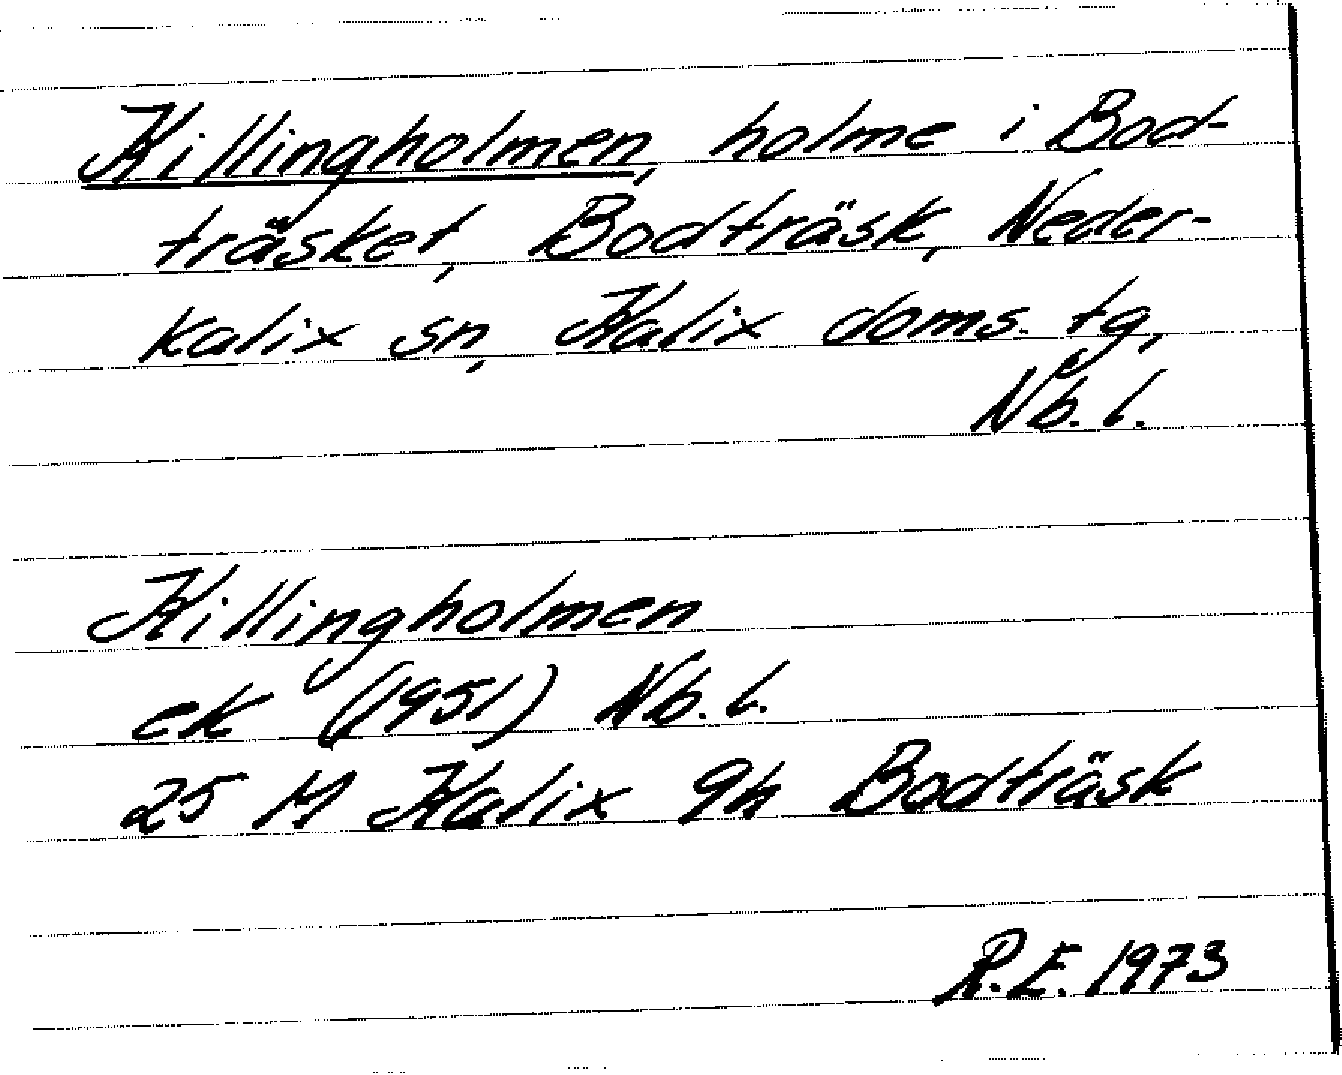 Killingholmen, holme i Bod-
träsket, Bodträsk, Neder-
kalix sn, Kalix doms. tg,
Nb. l.
Killingholmen
ek (1951) Nb. l.
25 M Kalix 9h Bodträsk
R.E. 1973